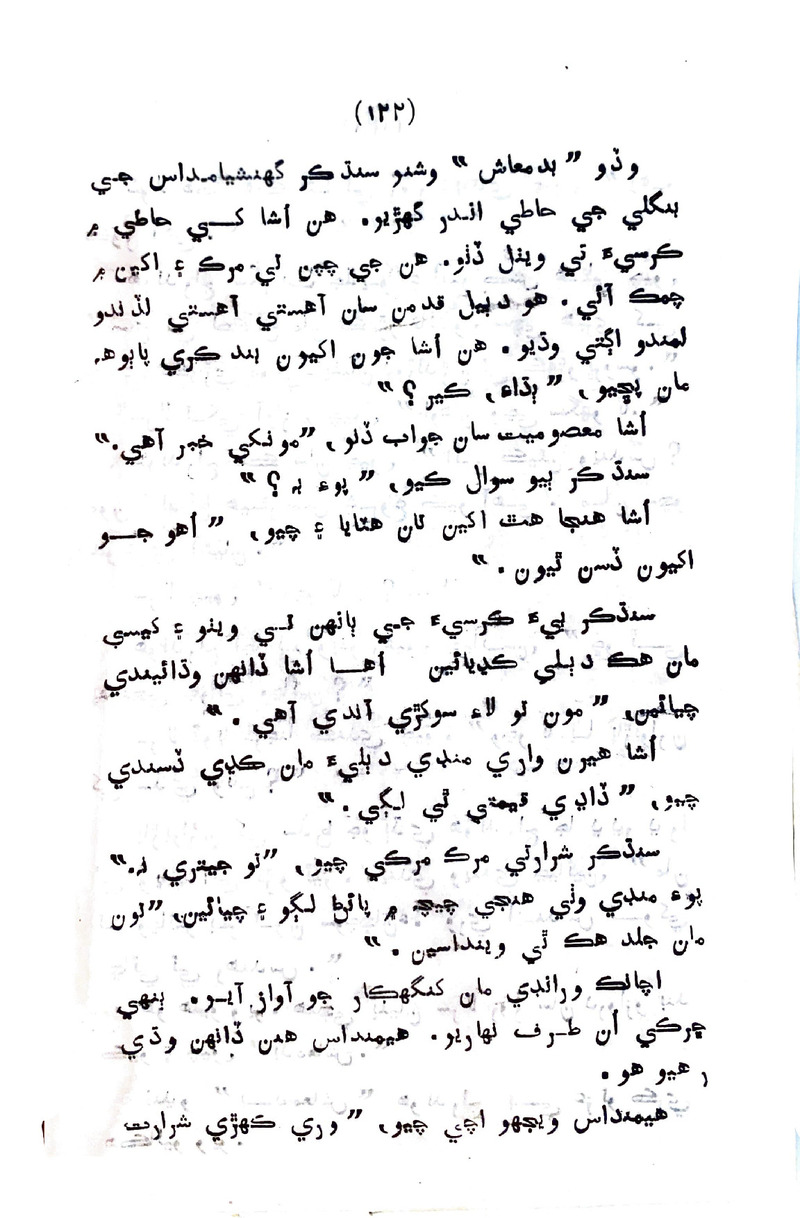 (١٢٢)
وڏو ”بدمعاش“ وشنو سنڌڪر گهنشيامداس جي
بنگلي جي حاطي اندر گهڙيو. هن اُشا کي حاطي ۾
ڪرسيءَ تي ويٺل ڏٺو. هن جي چپن تي مرڪ ۽ اکين ۾
چمڪ آئي. هو دٻيل قدمن سان آهستي آهستي لڏندو
لمندو اڳتي وڌيو. هن اُشا جون اکيون بند ڪري پاٻوهہ
مان پڇيو، ”ٻڌاءِ، ڪير؟“
اُشا معصوميت سان جواب ڏنو، ”مونکي خبر آهي.“
سنڌڪر ٻيو سوال ڪيو، ”پوءِ بہ؟“
اُشا هنجا هٿ اکين تان هٽايا ۽ چيو، ”اُهو جــو
اکيون ڏسن ٿيون.“
سنڌڪر ٻيءَ ڪرسيءَ جي ٻانهن تي ويٺو ۽ کيسي
مان هڪ دٻلي ڪڍيائين اُهــا اُشا ڏانهن وڌائيندي
چيائين، ”مون تو لاءِ سوکڙي آندي آهي.“
اُشا هيرن واري منڊي دٻليءَ مان ڪڍي ڏسندي
چيو، ”ڏاڍي قيمتي ٿي لڳي.“
سنڌڪر شرارتي مرڪ مرڪي چيو، ”تو جيتري نہ.“
پوءِ منڊي وٺي هنجي چيچ ۾ پائڻ لڳو ۽ چيائين، ”تون
مان جلد هڪ ٿي وينداسين.“
اچانڪ ورانڊي مان کنگهڪار جو آواز آيو. ٻنهي
ڇرڪي اُن طرف نهاريو. هيمنداس هنن ڏانهن وڌي
رهيو هو.
هيمنداس ويجهو اچي چيو، ”وري ڪهڙي شرارت